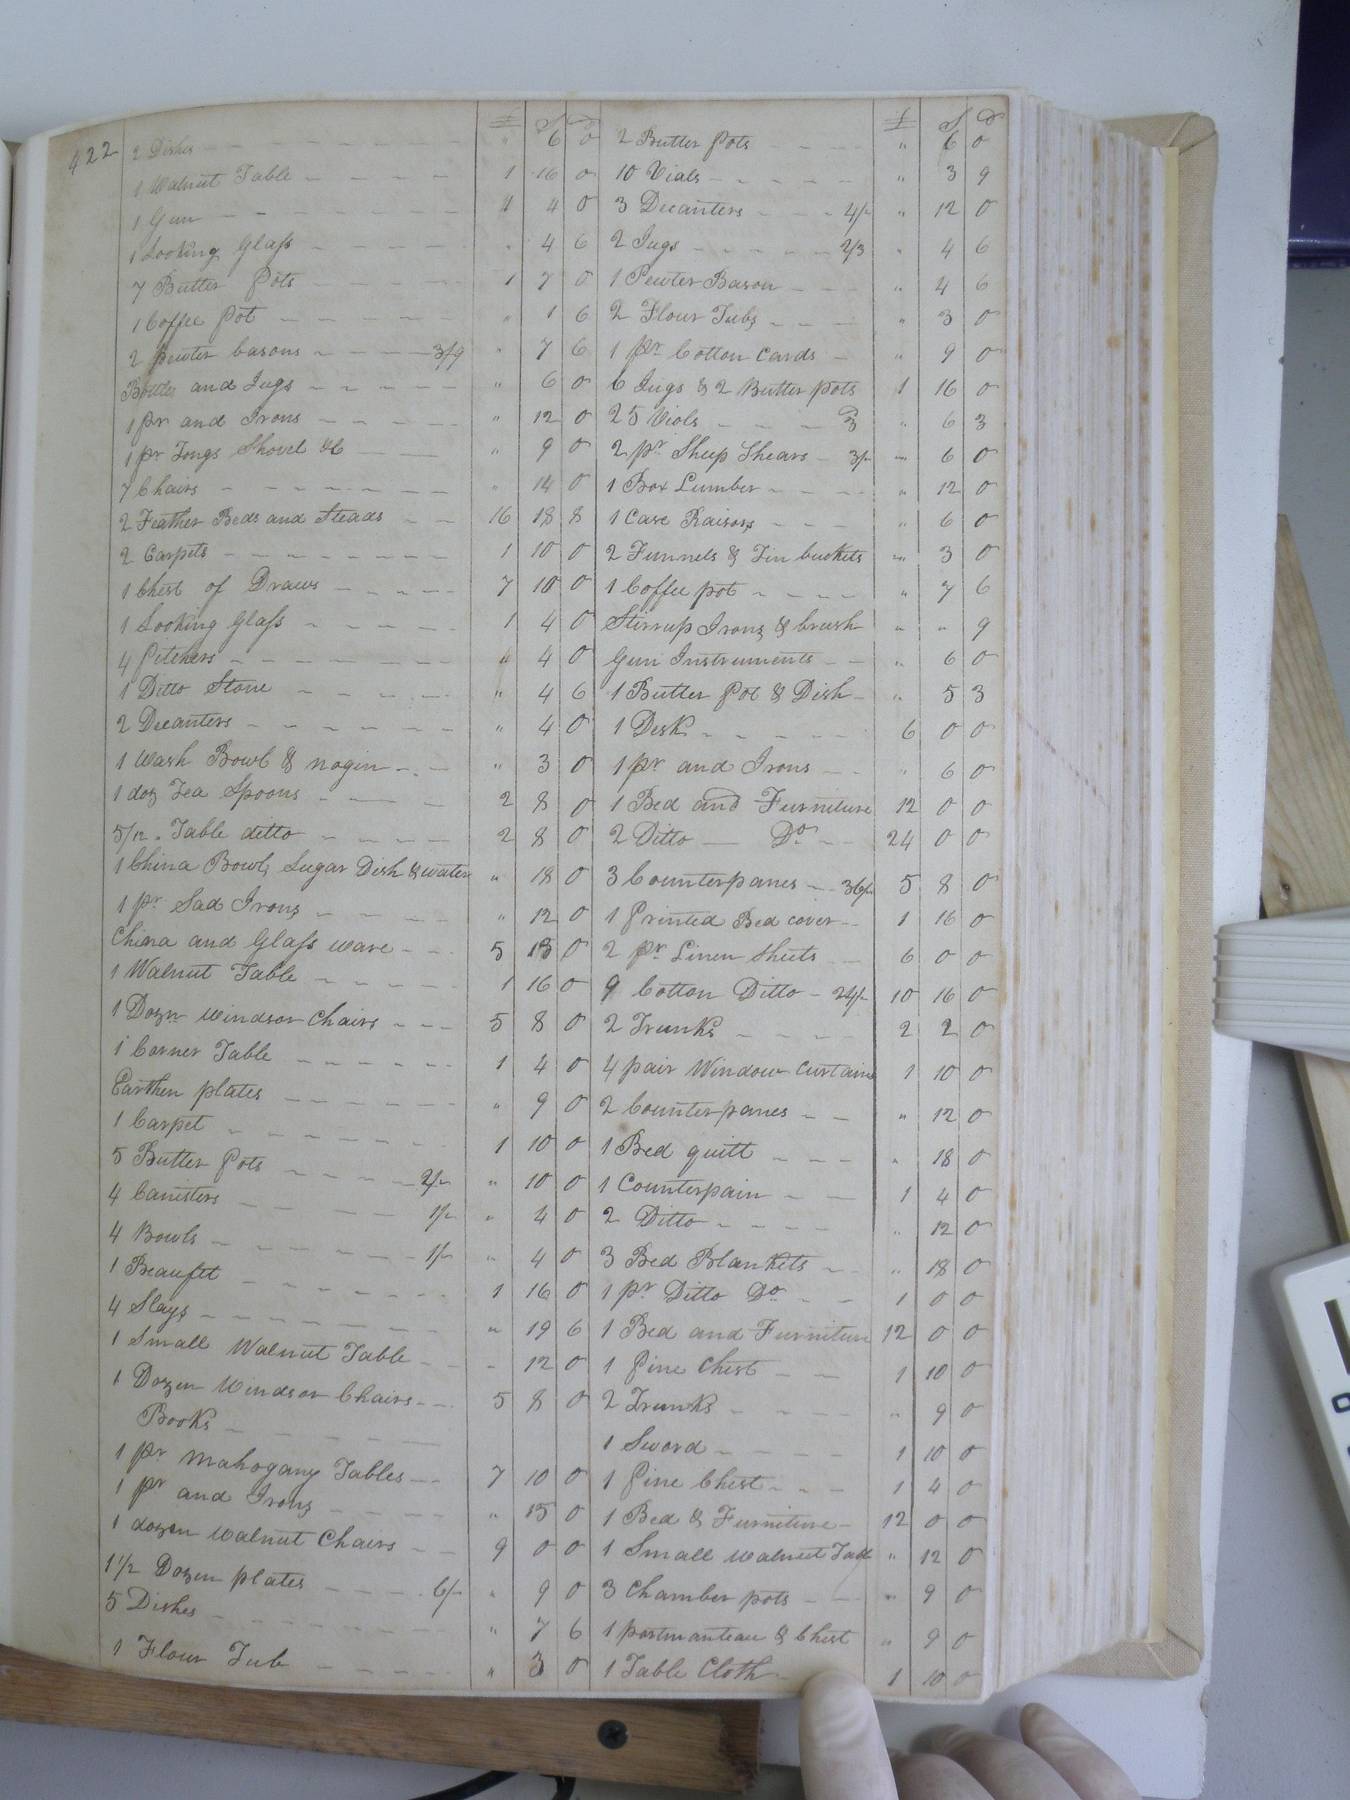 422
£ S D
2 Dishes " 6 0
1 Walnut Table 1 16 0
1 Gun 4 0
1 Looking Glass " 4 6
7 Butter Pots 1 7 0
1 Coffee Pot " 1 6
2 pewter basons 3/9 " 7 6
Bottles and Jugs " 6 0
1 pr and Irons " 12 0
1 pr Tongs Shovel &c " 9 0
7 Chairs " 14 0
2 Feather Beds and Steads 16 18 8
2 Carpets 1 10 0
1 Chest of Draws 7 10 0
1 Looking Glass 1 4 0
4 Pitchers 4 0
1 Ditto Stone " 4 6
2 Decanters " 4 0
1 Wash Bowl & nogin " 3 0
1 doz Tea Spoons 2 8 0
5/12 " Table ditto 2 8 0
1 China Bowl, Sugar Dish & water " 18 0
1 pr Sad Irons " 12 0
China and Glass ware 5 13 0
1 Walnut Table 1 16 0
1 Dozn Windsor Chairs 5 8 0
1 Corner Table 1 4 0
Earthen plates " 9 0
1 Carpet 1 10 0
5 Butter Pots 2/- " 10 0
4 Canisters 1/- " 4 0
4 Bowls 1/- " 4 0
1 Beaufet 1 16 0
4 Slays " 19 6
1 Small Walnut Table " 12 0
1 Dozen Windsor Chairs 5 8 0
Books
1 pr Mahogany Tables 7 10 0
1 pr and Irons " 15 0
1 dozen Walnut Chairs 9 0 0
1 1/2 Dozen plates 6/- " 9 0
5 Dishes " 7 6
1 Flour Tub " 3 0
£ S D
2 Butter Pots " 6 0
10 Vials " 3 9
3 Decanters 4/- " 12 0
2 Jugs 2/3 " 4 6
1 Pewter Bason " 4 6
2 Flour Tubs " 3 0
1 pr Cotton Cards " 9 0
6 Jugs & 2 Butter pots 1 16 0
25 Viols 3 " 6 3
2 pr Sheep Shears 3/- " 6 0
1 Box Lumber " 12 0
1 Case Raisors " 6 0
2 Funnels & Tin buckets " 3 0
1 Coffee pot " 7 6
Stirrup Irons & brush " " 9
Gun Instruments " 6 0
1 Butter Pot & Dish " 5 3
1 Desk 6 0 0
1 pr and Irons " 6 0
1 Bed and Furniture 12 0 0
2 Ditto Do 24 0 0
3 Counterpanes 36/- 5 8 0
1 Printed Bed cover 1 16 0
2 pr Linen Sheets 6 0 0
9 Cotton Ditto 24/- 10 16 0
2 Trunks 2 2 0
4 pair Window Curtains 1 10 0
2 Counterpanes " 12 0
1 Bed quilt " 18 0
1 Counterpain 1 4 0
2 Ditto " 12 0
3 Bed Blankets " 18 0
1 pr Ditto Do 1 0 0
1 Bed and Furniture 12 0 0
1 Pine Chest 1 10 0
2 Trunks " 9 0
1 Sword 1 10 0
1 Pine Chest 1 4 0
1 Bed & Furniture 12 0 0
1 Small Walnut Table " 12 0
3 Chamber pots " 9 0
1 portmanteau & Chest " 9 0
1 Table Cloth 1 10 0